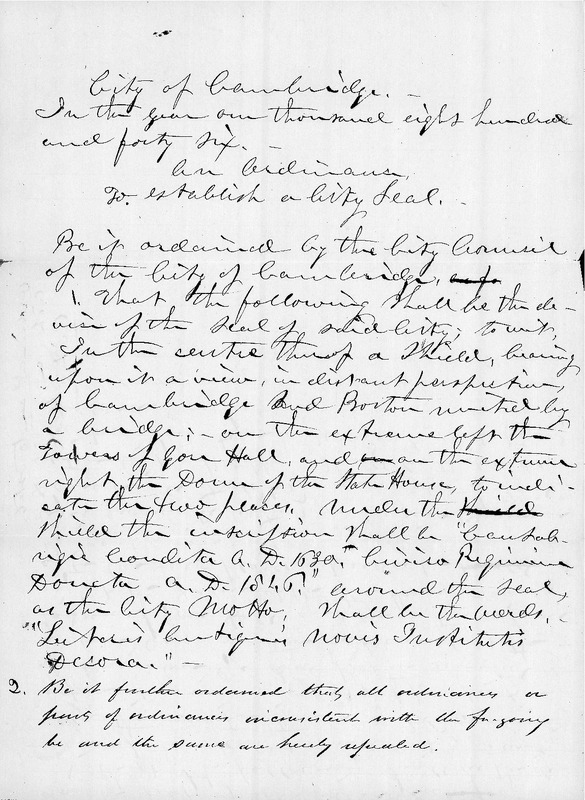 City of Cambridge. –
In the year one thousand eight hundred
and forty six. –
An Ordinance,
To establish a City Seal. –
Be it ordained by the City Council
of the City of Cambridge,
1. That the following shall be the de-
vise of the Seal of said City; to wit,
In the centre therof a Shield, bearing
upon it a view, in distant perspective,
of Cambridge and Boston united by
a bridge; – on the extreme left the
Towers of Gore Hall, and on the extreme
right the Dome of the State House, to indi-
cate the two places. Under the Shield
Shield the inscription shall be "Cantab-
rigia Condita A. D. 1630." Civico Regimine
Donata A. D. 1846." around the Seal,
as the City Motto, shall be the words, –
"Literis Antiquis novis Institutis
Decora." –
2. Be it further ordained that all ordinances or
parts of ordinances inconsistent with the foregoing
be and the same are hereby repealed.